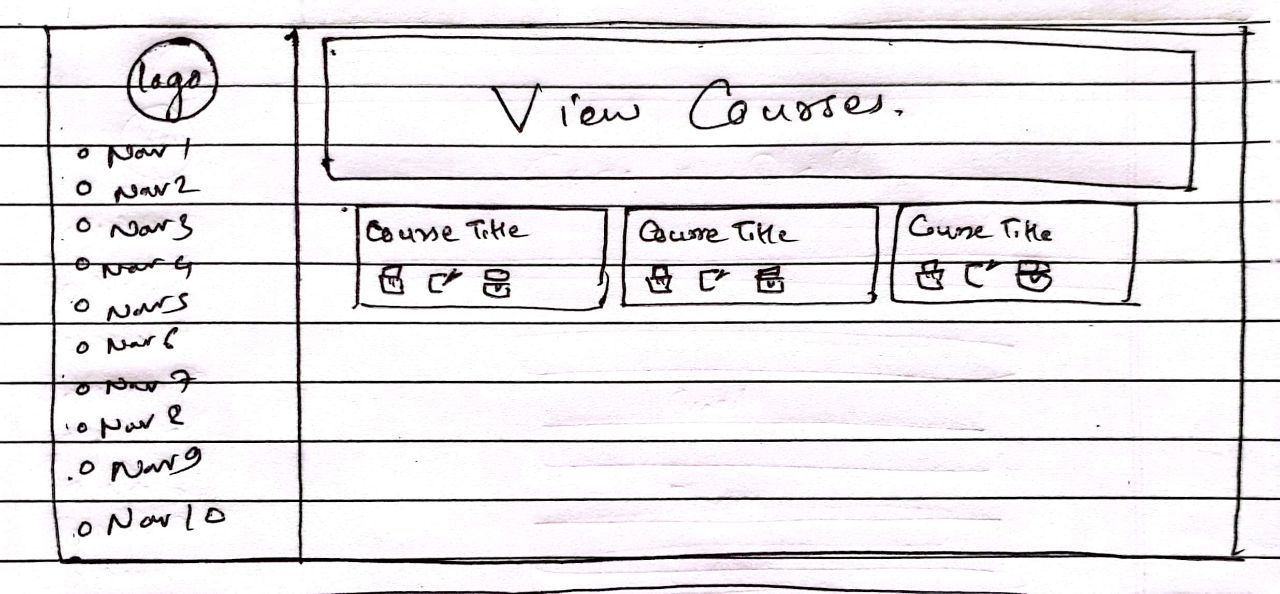 Logo
Nav 1
Nav 2
Nav 3
Nav 4
Nav 5
Nav 6
Nav 7
Nav 8
Nav 9
Nav 10
View Courses.
Course Title
Course Title
Course Title